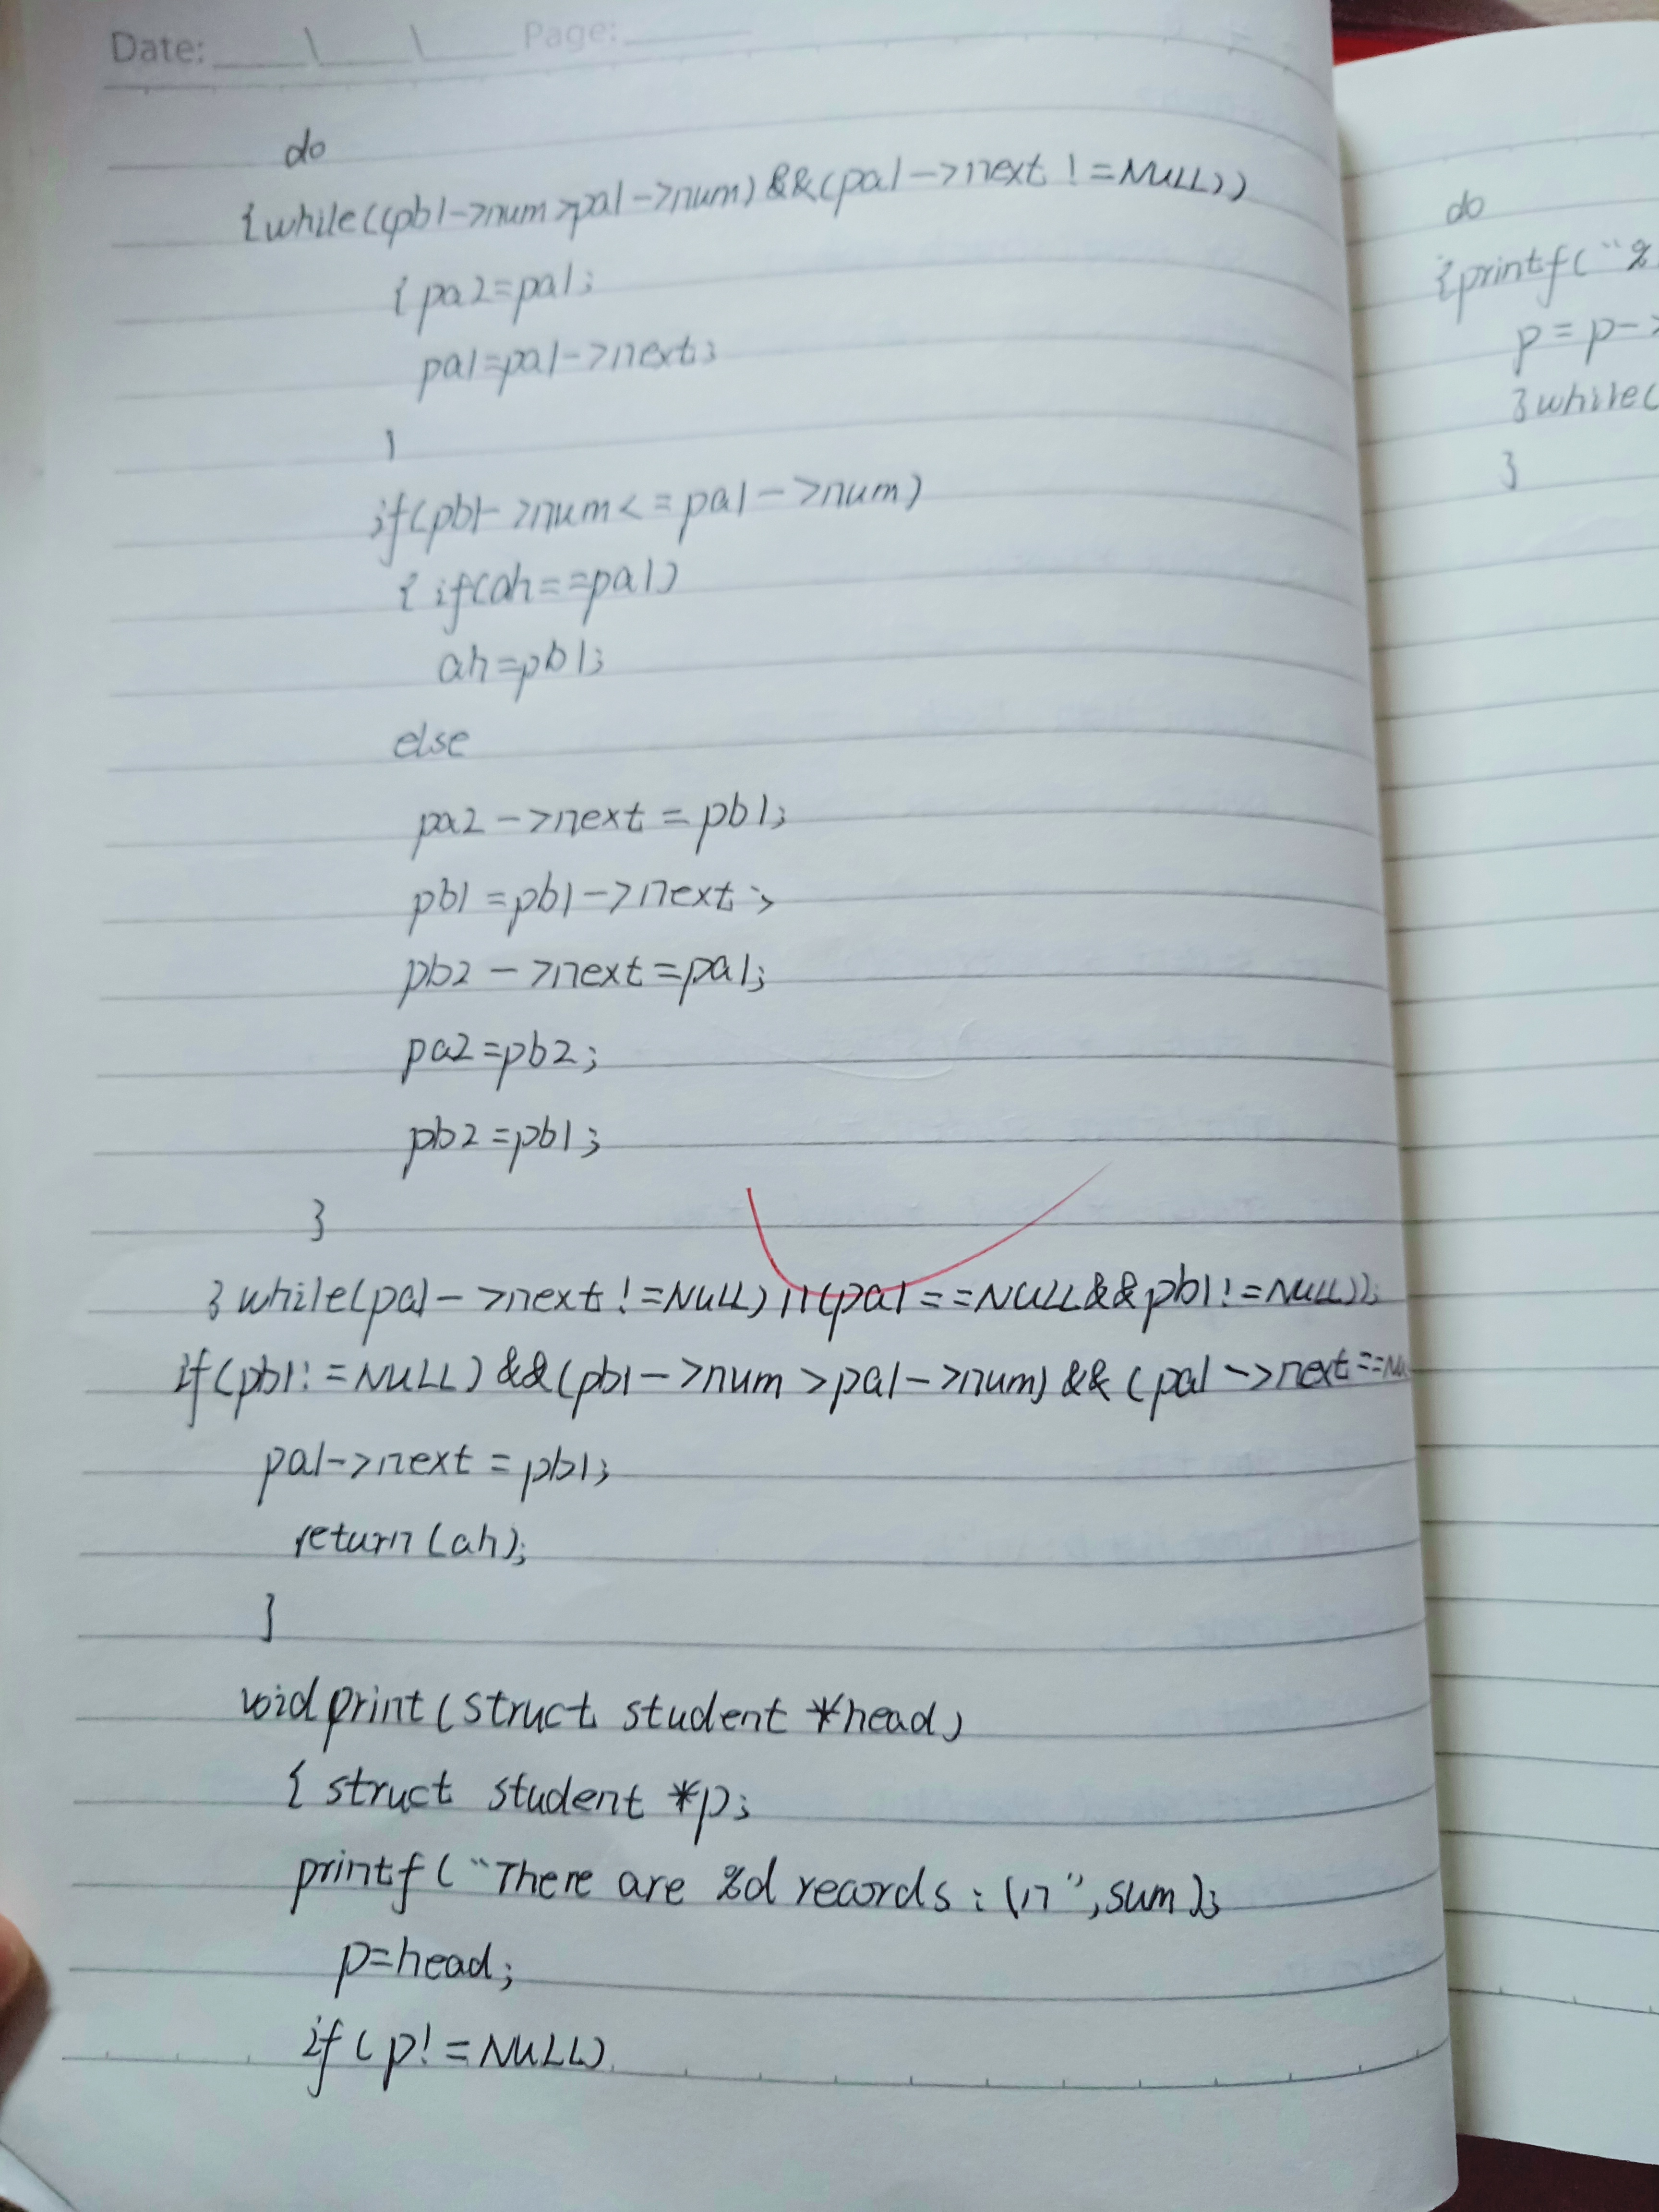 Date: Page:
do
{while((pb1->num>pa1->num)&&(pa1->next!=NULL))
{pa2=pa1;
pa1=pa1->next;
}
if(pb1->num<=pa1->num)
{if(ah==pa1)
ah=pb1;
else
pa2->next=pb1;
pb1=pb1->next;
pb2->next=pa1;
pa2=pb2;
pb2=pb1;
}
}while(pa1->next!=NULL)||(pa1==NULL&&pb1!=NULL);
if(pb1!=NULL)&&(pb1->num>pa1->num)&&(pa1->next==NU
pa1->next=pb1;
return(ah);
}
void print(struct student *head)
{struct student *p;
printf("There are %d records:\n",sum);
p=head;
if(p!=NULL)
do
{printf("%
p=p->
}while(
}